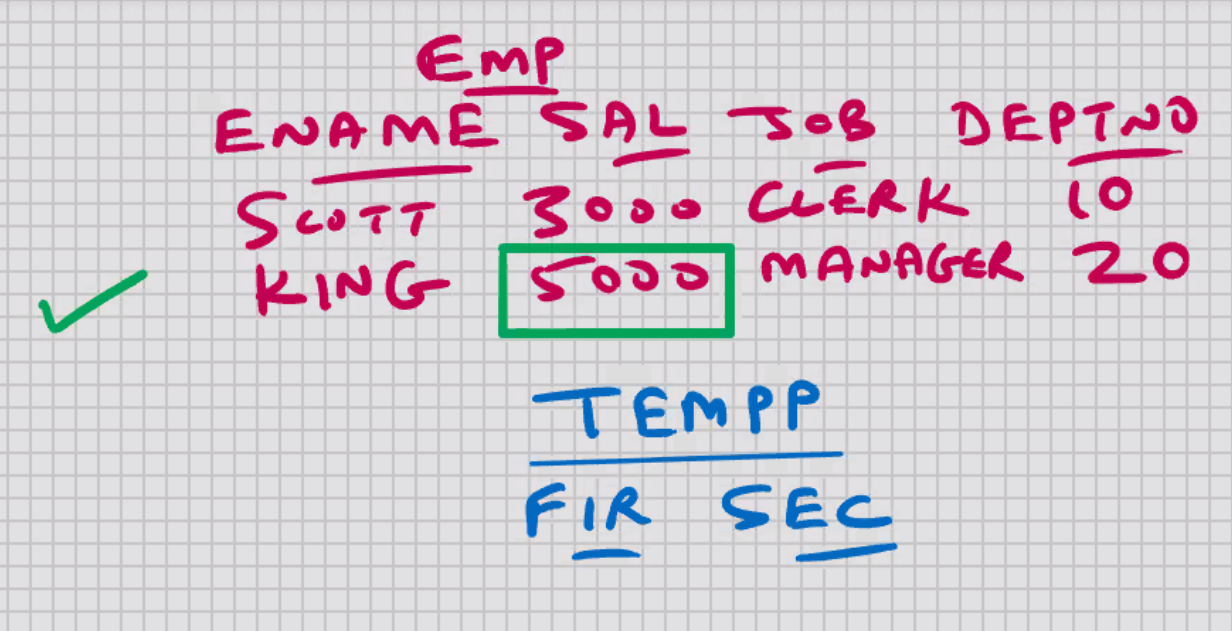 EMP
ENAME SAL JOB DEPTNO
SCOTT 3000 CLERK 10
KING 5000 MANAGER 20
TEMPP
FIR SEC